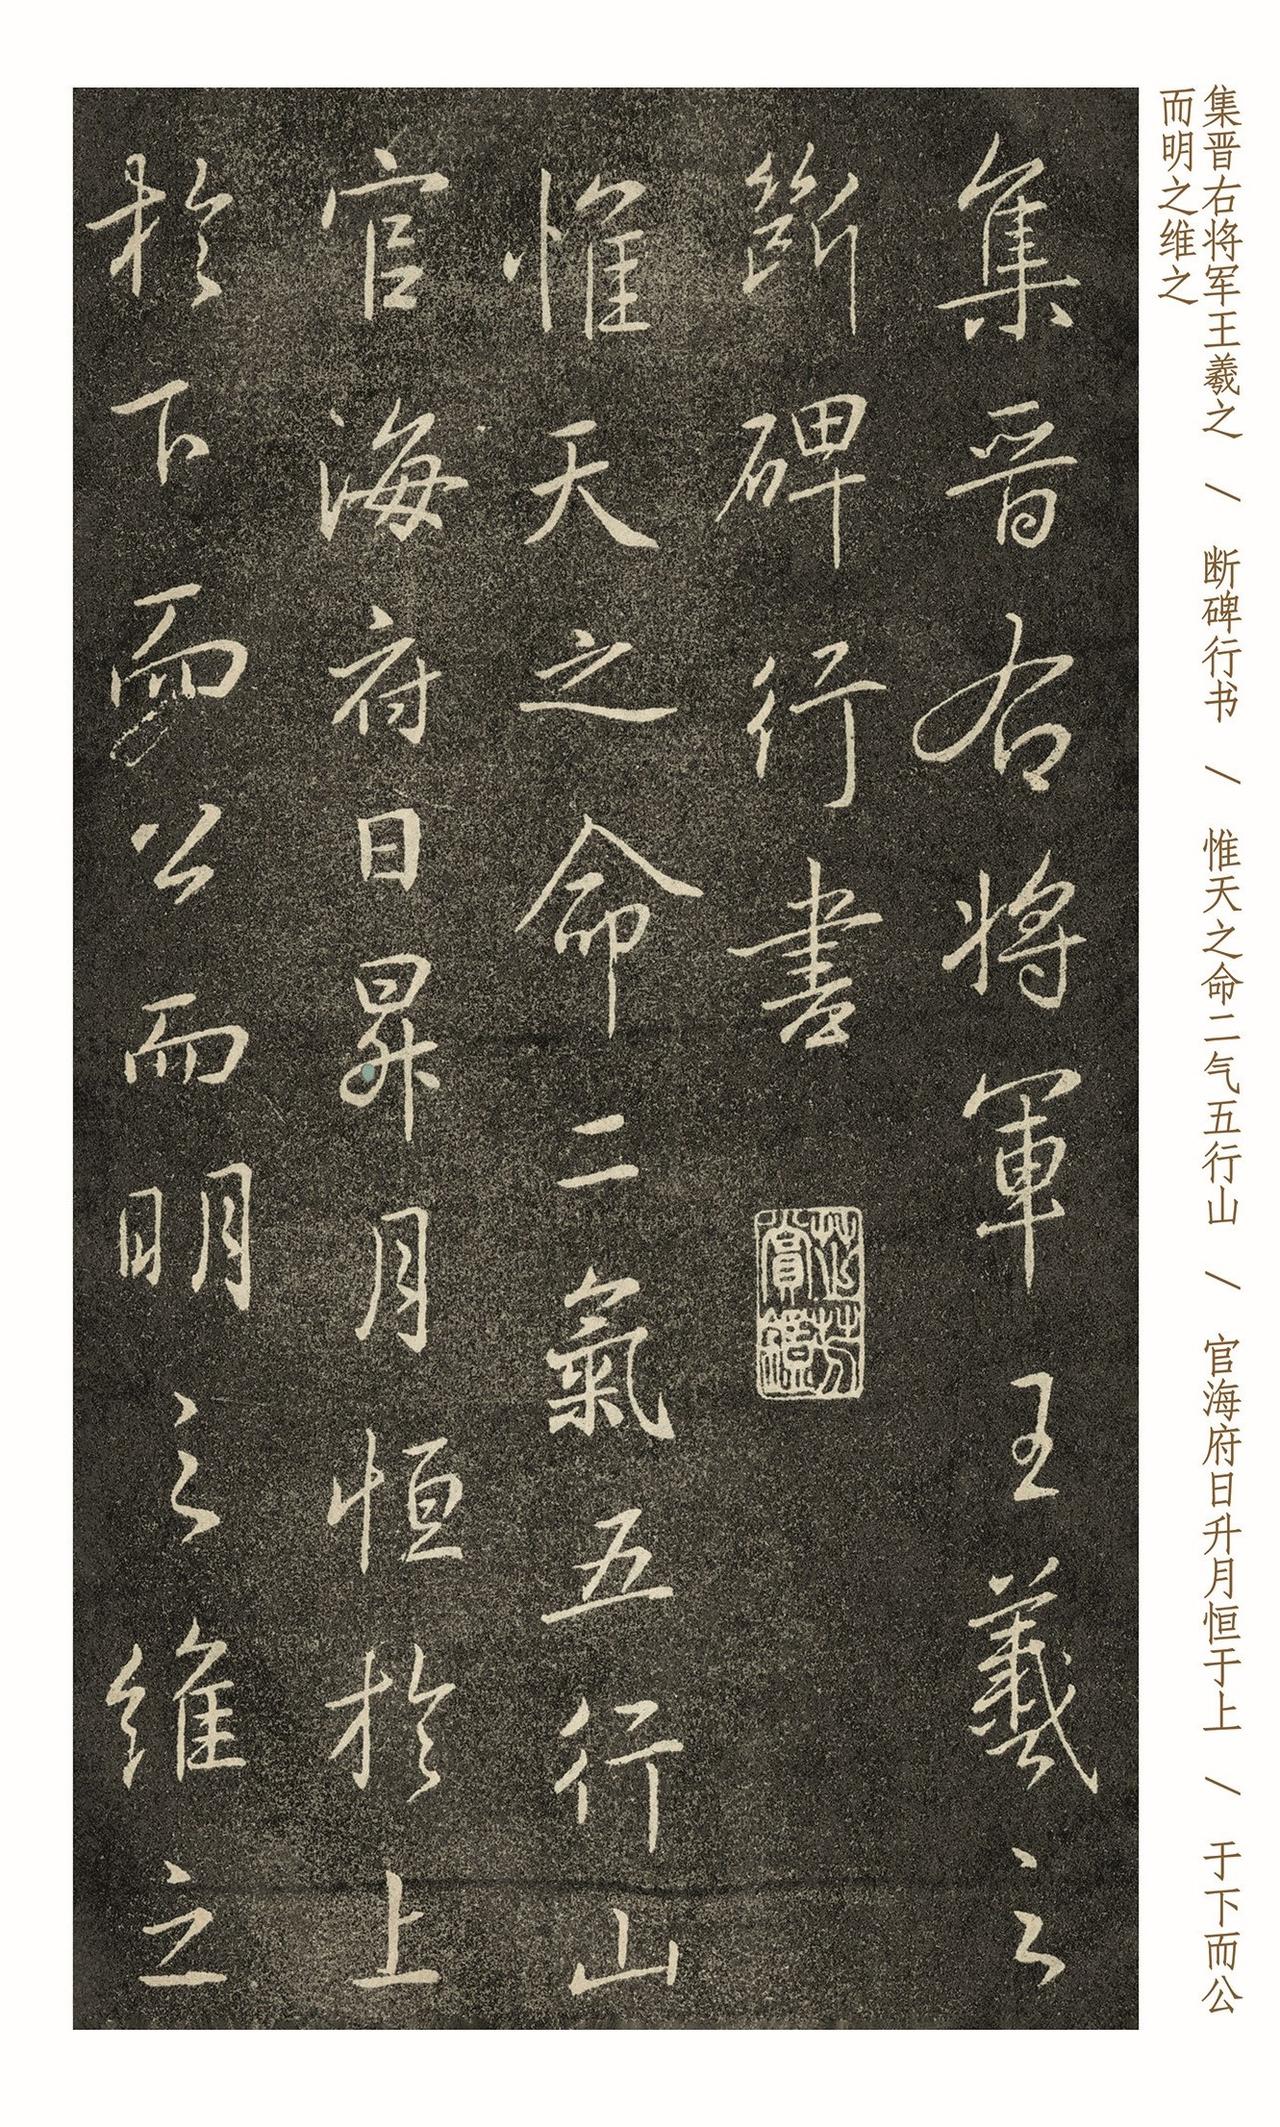 集晋右将军王羲之 / 断碑行书 / 惟天之命二气五行山 / 官海府日升月恒于上 / 于下而公
而明之维之
集晉右將軍王羲之
斷碑行書
惟天之命二氣五行山
官海府日昇月恒於上
於下而公而明之維之